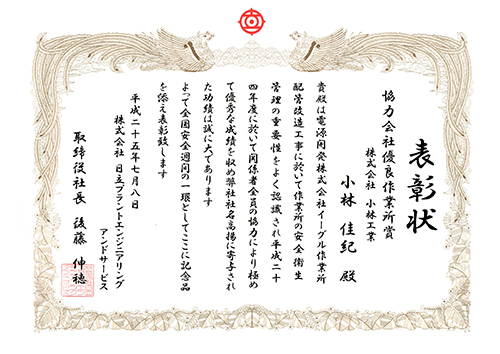 表彰状
協力会社優良作業所賞
株式会社 小林工業
小林 佳紀 殿
貴殿は電源開発株式会社イーグル作業所
配管改造工事に於いて作業所の安全衛生
管理の重要性をよく認識され平成二十
四年度に於いて関係者全員の協力により極め
て優秀な成績を収め弊社社名高揚に寄与され
た功績は誠に大であります
よって全国安全週間の一環としてここに記念品
を添え表彰致します
平成二十五年七月八日
株式会社 日立プラントエンジニアリング
アンドサービス
取締役社長 後藤 伸穂